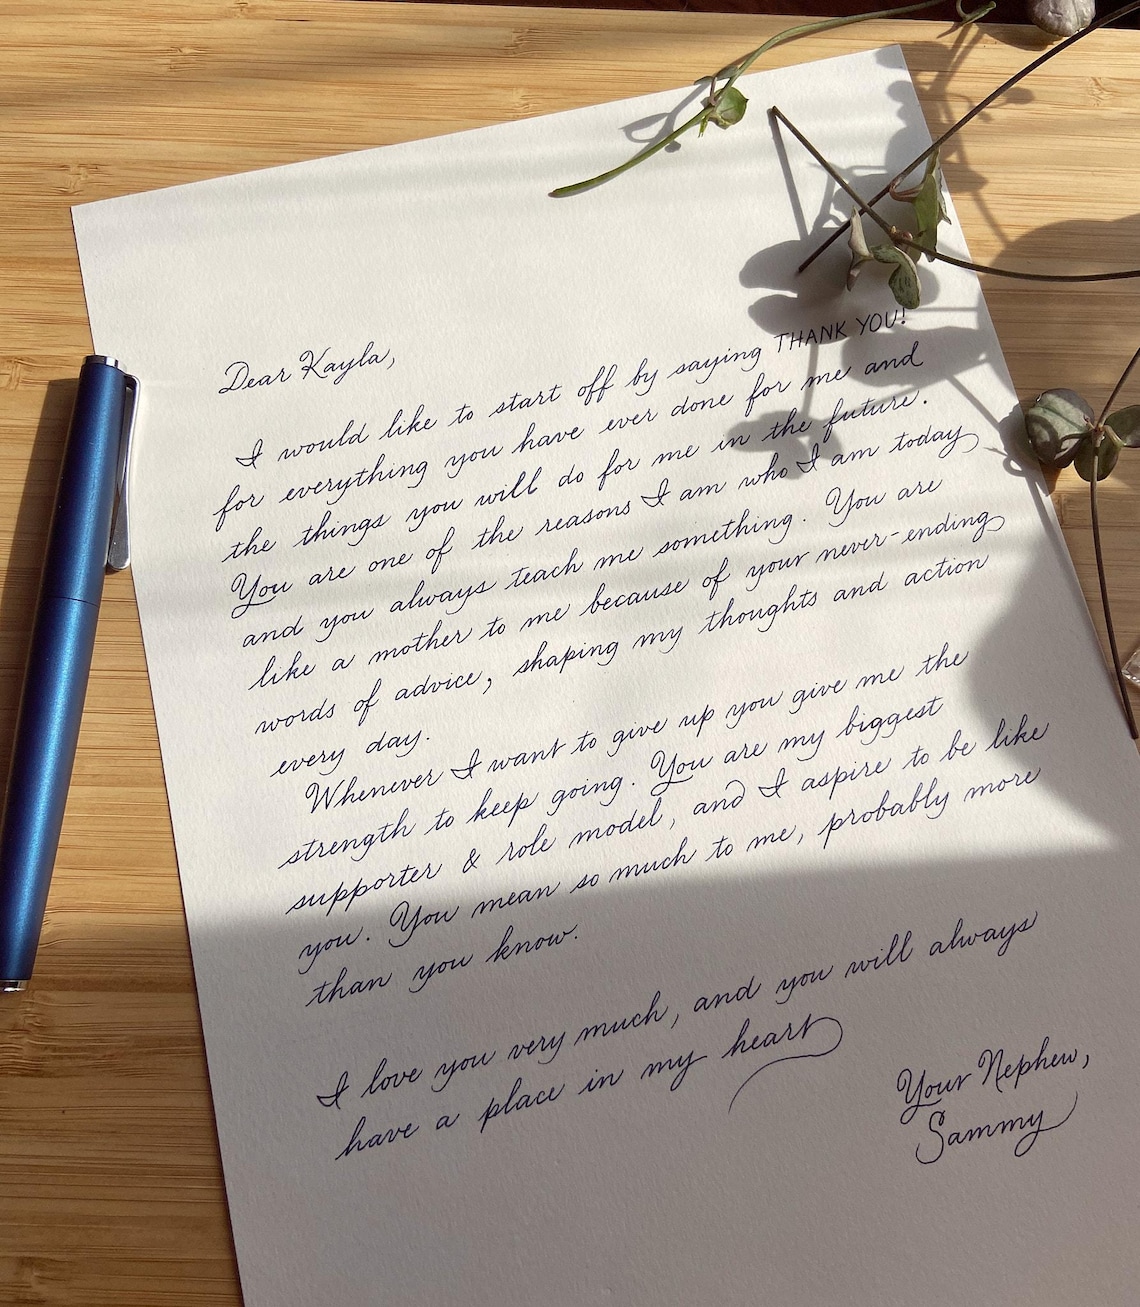 Dear Kayla,
I would like to start off by saying THANK YOU!
for everything you have ever done for me and
the things you will do for me in the future.
You are one of the reasons I am who I am today
and you always teach me something. You are
like a mother to me because of your never-ending
words of advice, shaping my thoughts and action
every day.
Whenever I want to give up you give me the
strength to keep going. You are my biggest
supporter & role model, and I aspire to be like
you. You mean so much to me, probably more
than you know.
I love you very much, and you will always
have a place in my heart
Your Nephew,
Sammy